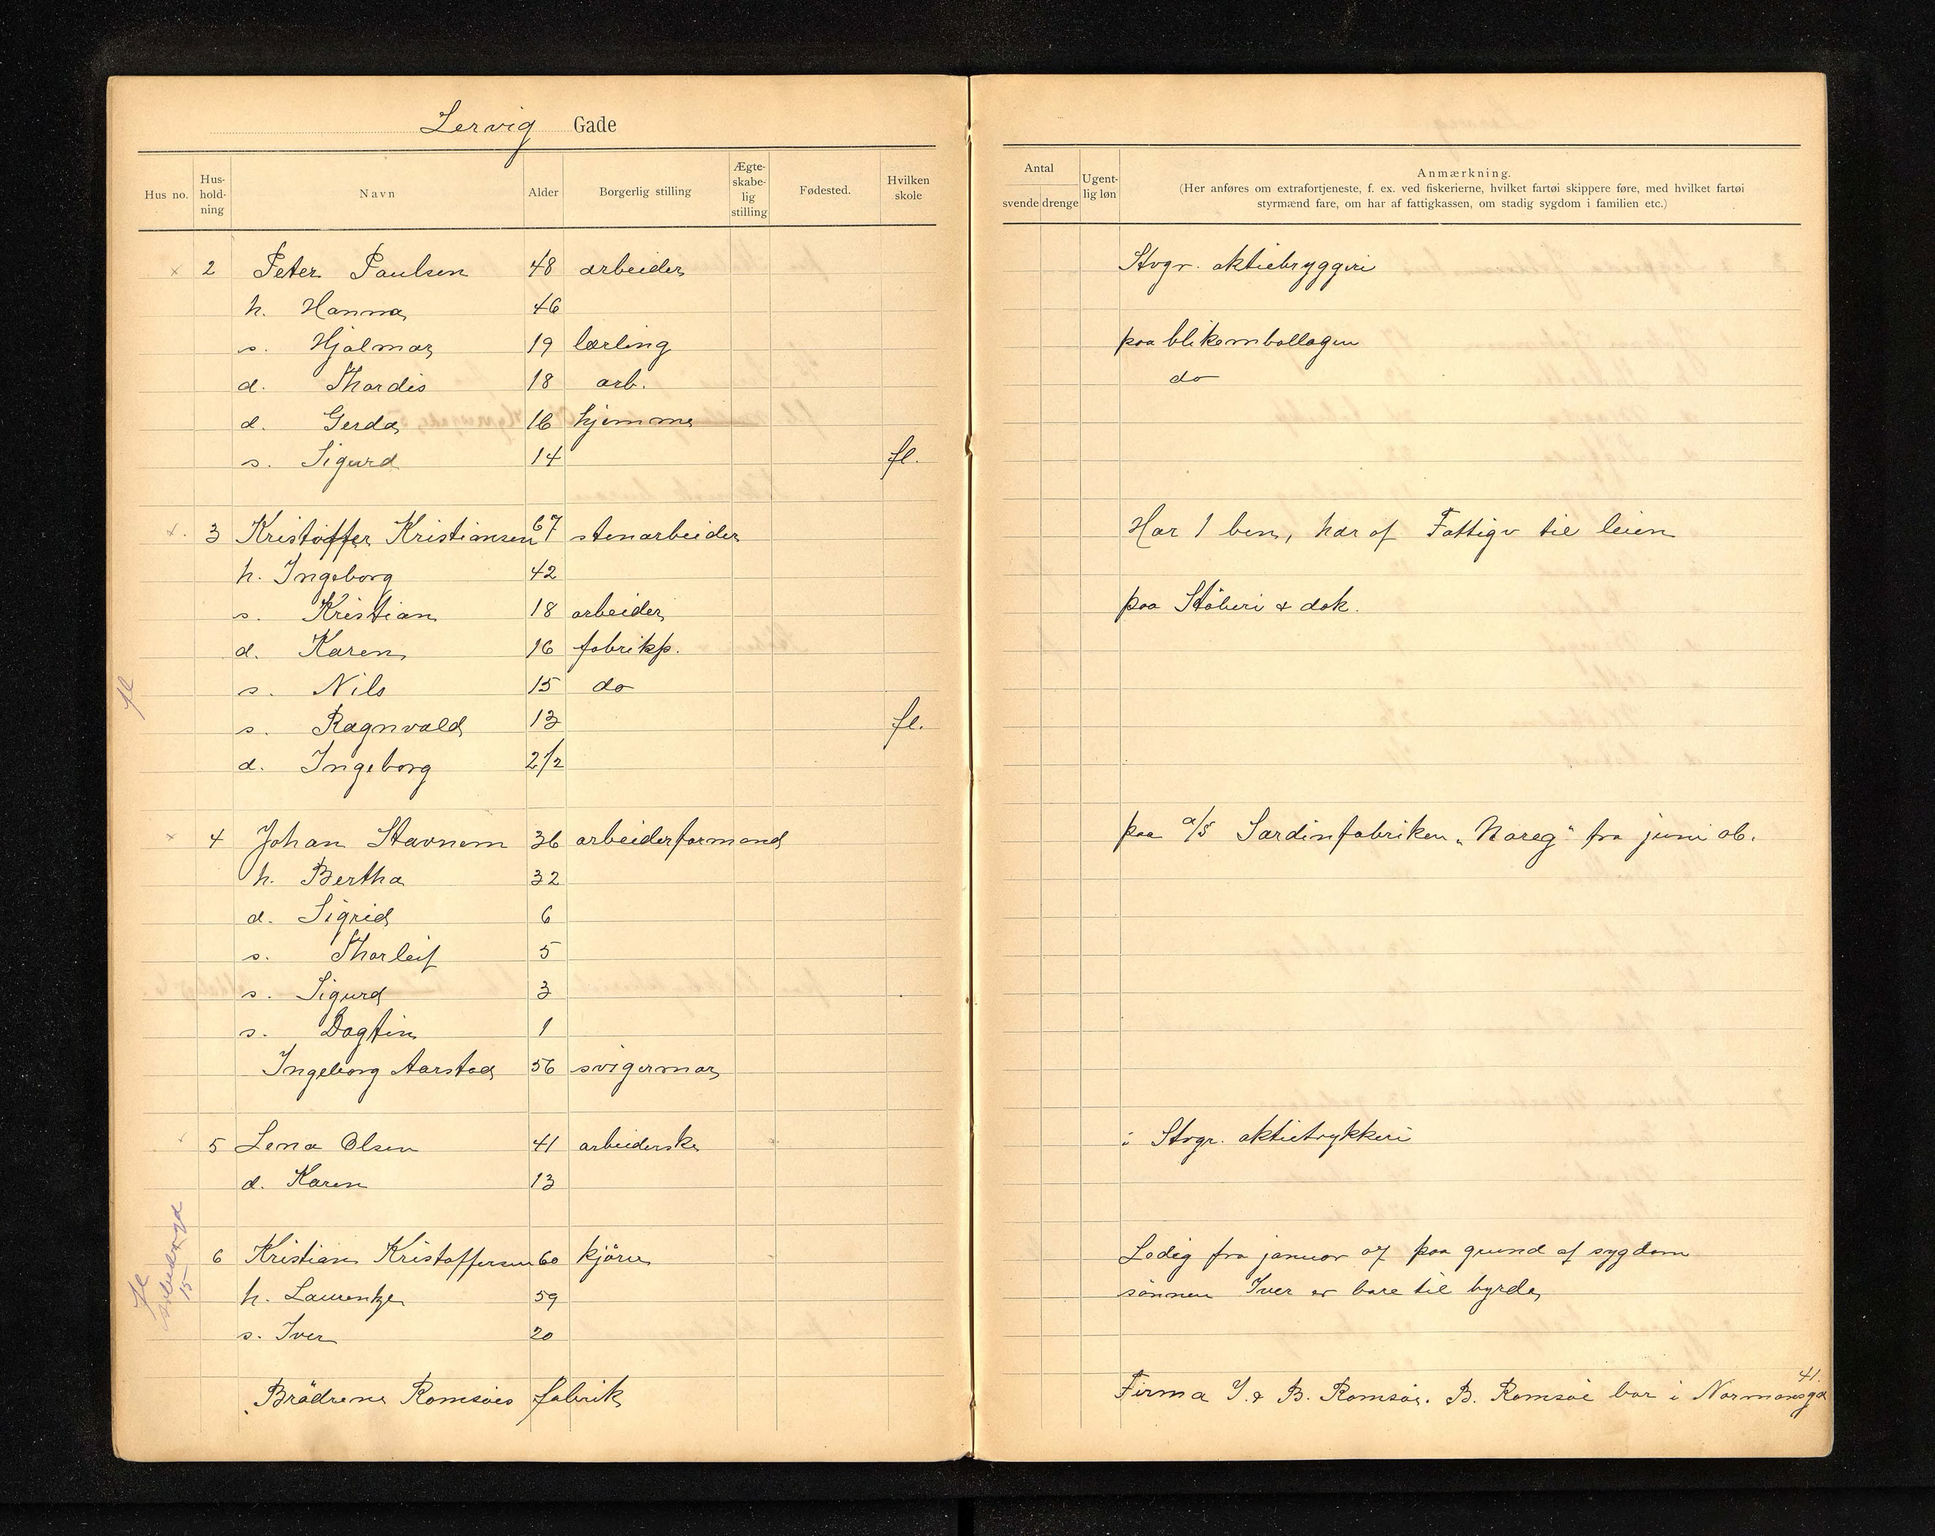 Lervig Gade
Hus no. Hus-hold-ning Navn Alder Borgerlig stilling Ægte-skabe-lig stilling Fødested. Hvilken skole Antal svende drenge Ugent-lig løn Anmærkning.
(Her anføres om extrafortjeneste, f. ex. ved fiskerierne, hvilket fartøi skippere føre, med hvilket fartøi
styrmænd fare, om har af fattigkassen, om stadig sygdom i familien etc.)
× 2 Peter Paulsen 48 arbeider Stvgr. aktiebryggeri
h. Hanna 46
s. Hjalmar 19 lærling paa blikemballagen
d. Thordis 18 arb. do
d. Gerda 16 hjemme
s. Sigurd 14 fl.
×. 3 Kristoffer Kristiansen 67 stenarbeider Har 1 ben, har af Fattigv til leien
h. Ingeborg 42
s. Kristian 18 arbeider paa Støberi & dok.
d. Karen 16 fabrikp.
fl s. Nils 15 do
s. Ragnvald 13 fl.
d. Ingeborg 2 1/2
× 4 Johan Stavnem 36 arbeiderformand paa a/s Sardinfabriken „Noreg" fra juni 06.
h. Bertha 32
d. Sigrid 6
s. Thorleif 5
s. Sigurd 3
s. Dagfin 1
Ingeborg Aarstad 56 svigermor
× 5 Lena Olsen 41 arbeiderske i Stvgr. aktietrykkeri
d. Karen 13
fl 15
6 Kristian Kristoffersen 60 kjører Ledig fra januar 07 paa grund af sygdom
h. Laurentze 59 sønnen Iver er bare til byrde
s. Iver 20
Brødrene Romsøes fabrik Firma I. & B. Romsøe. B. Romsøe bor i Normansgd 41.